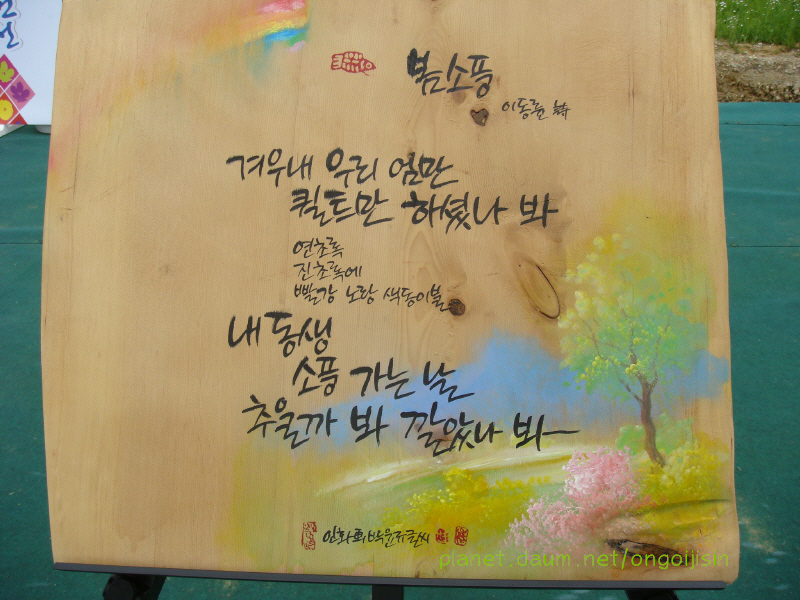 봄소풍
이동륜 詩
겨우내 우리 엄만
퀼트만 하셨나 봐
연초록
진초록에
빨강 노랑 색동이불
내 동생
소풍 가는 날
추울까 봐 깔았나 봐~
planet.daum.net/ongoijisin